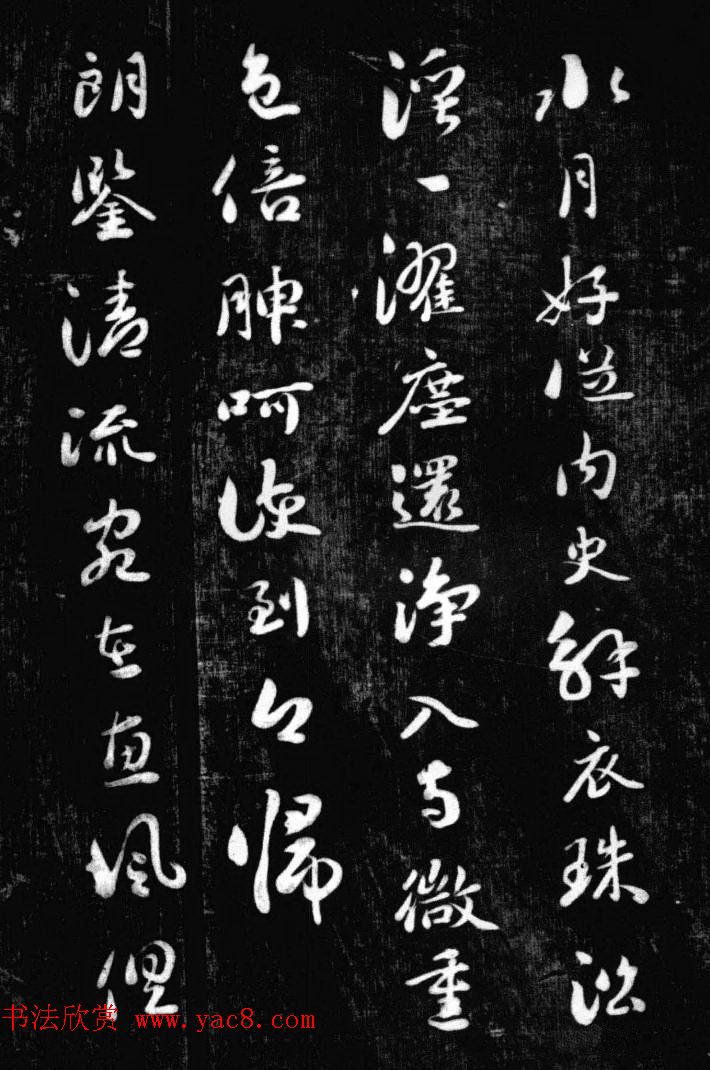 水月好從内史解衣珠
一濯塵還淨入微重
色倍腴呵護到今歸
朗鑒清流宛在惠風俱
书法欣赏 www.yac8.com